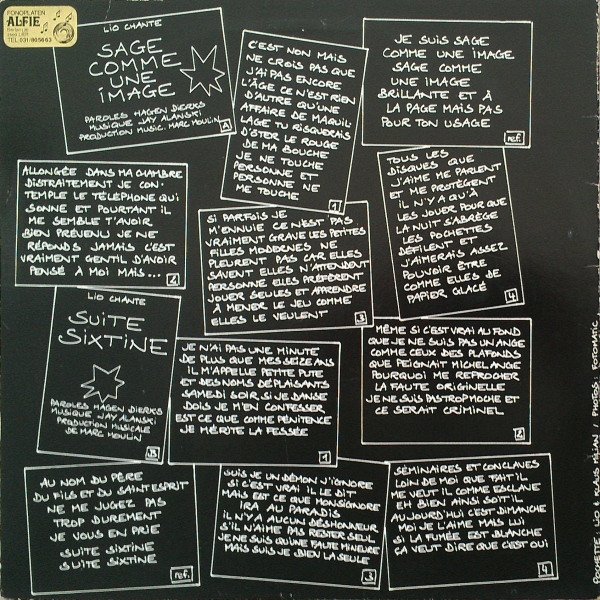 FONOPLATEN
ALFIE
TEL. 031/805663
LIO CHANTE
SAGE
COMME
UNE
IMAGE
PAROLES HAGEN DIERKS
MUSIQUE JAY ALANSKI
PRODUCTION MUSIC. MARC MOULIN
A
C'EST NON MAIS
NE CROIS PAS QUE
J'AI PAS ENCORE
L'ÂGE CE N'EST RIEN
D'AUTRE QU'UNE
AFFAIRE DE MAQUIL
LAGE TU RISQUERAIS
D'ÔTER LE ROUGE
DE MA BOUCHE
JE NE TOUCHE
PERSONNE ET
PERSONNE NE
ME TOUCHE
1
JE SUIS SAGE
COMME UNE IMAGE
SAGE COMME
UNE IMAGE
BRILLANTE ET À
LA PAGE MAIS PAS
POUR TON USAGE
ref.
ALLONGÉE DANS MA CHAMBRE
DISTRAITEMENT JE CON.
TEMPLE LE TÉLÉPHONE QUI
SONNE ET POURTANT IL
ME SEMBLE T'AVOIR
BIEN PRÉVENU JE NE
RÉPONDS JAMAIS C'EST
VRAIMENT GENTIL D'AVOIR
PENSÉ À MOI MAIS...
2
SI PARFOIS JE
M'ENNUIE CE N'EST PAS
VRAIMENT GRAVE LES PETITES
FILLES MODERNES NE
PLEURENT PAS CAR ELLES
SAVENT ELLES N'ATTENDENT
PERSONNE ELLES PRÉFÈRENT
JOUER SEULES ET APPRENDRE
À MENER LE JEU COMME
ELLES LE VEULENT
3
TOUS LES
DISQUES QUE
J'AIME ME PARLENT
ET ME PROTÈGENT
IL N'Y A QU'À
LES JOUER POUR QUE
LA NUIT S'ABRÈGE
LES POCHETTES
DÉFILENT ET
J'AIMERAIS ASSEZ
POUVOIR ÊTRE
COMME ELLES DE
PAPIER GLACÉ
4
LIO CHANTE
SUITE
SIXTINE
PAROLES HAGEN DIERKS
MUSIQUE JAY ALANSKI
PRODUCTION MUSICALE
DE MARC MOULIN
B
JE N'AI PAS UNE MINUTE
DE PLUS QUE MES SEIZE ANS
IL M'APPELLE PETITE PUTE
ET DES NOMS DÉPLAISANTS
SAMEDI SOIR, SI JE DANSE
DOIS JE M'EN CONFESSER
EST CE QUE COMME PÉNITENCE
JE MÉRITE LA FESSÉE
1
MÊME SI C'EST VRAI AU FOND
QUE JE NE SUIS PAS UN ANGE
COMME CEUX DES PLAFONDS
QUE PEIGNAIT MICHEL ANGE
POURQUOI ME REPROCHER
LA FAUTE ORIGINELLE
JE NE SUIS PAS TROP MOCHE ET
CE SERAIT CRIMINEL
2
AU NOM DU PÈRE
DU FILS ET DU SAINT ESPRIT
NE ME JUGEZ PAS
TROP DUREMENT
JE VOUS EN PRIE
SUITE SIXTINE
SUITE SIXTINE
ref.
SUIS JE UN DÉMON J'IGNORE
SI C'EST VRAI IL LE DIT
MAIS EST CE QUE MONSIGNORE
IRA AU PARADIS
IL N'Y A AUCUN DÉSHONNEUR
S'IL N'AIME PAS RESTER SEUL
JE NE SUIS QU'UNE FAUTE MINEURE
MAIS SUIS JE BIEN LA SEULE
3
SÉMINAIRES ET CONCLAVES
LOIN DE MOI QUE FAIT IL
ME VEUT IL COMME ESCLAVE
EH BIEN AINSI SOIT IL
AUJOURD'HUI C'EST DIMANCHE
MOI JE L'AIME MAIS LUI
SI LA FUMÉE EST BLANCHE
ÇA VEUT DIRE QUE C'EST OUI
4
POCHETTE: LIO & KLAUS / PHOTOS: FOTOMATIC